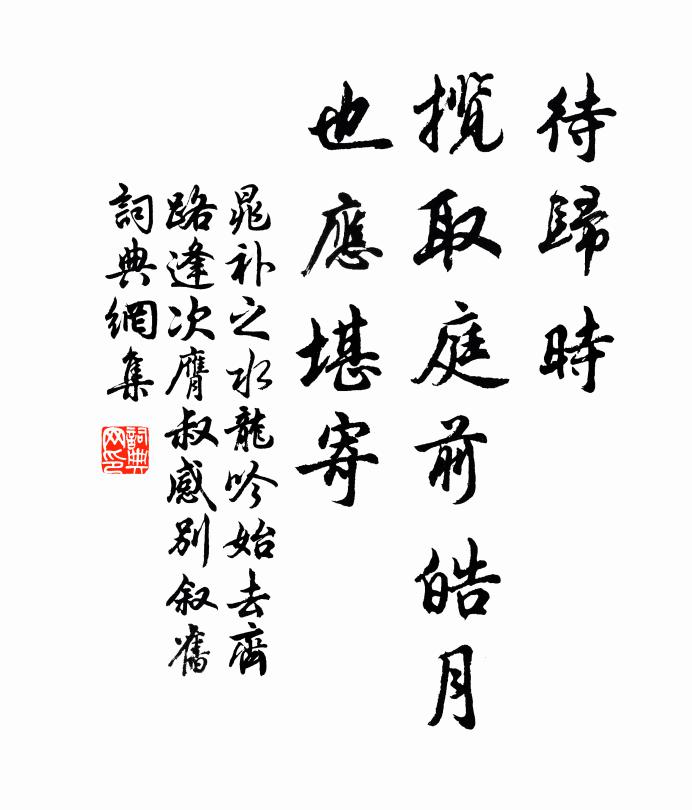 待歸時
攬取庭前皓月
也應堪寄
晁补之水龍吟始去齊
路逢次膺叔感别叙舊
詞典網集
詞典
网印